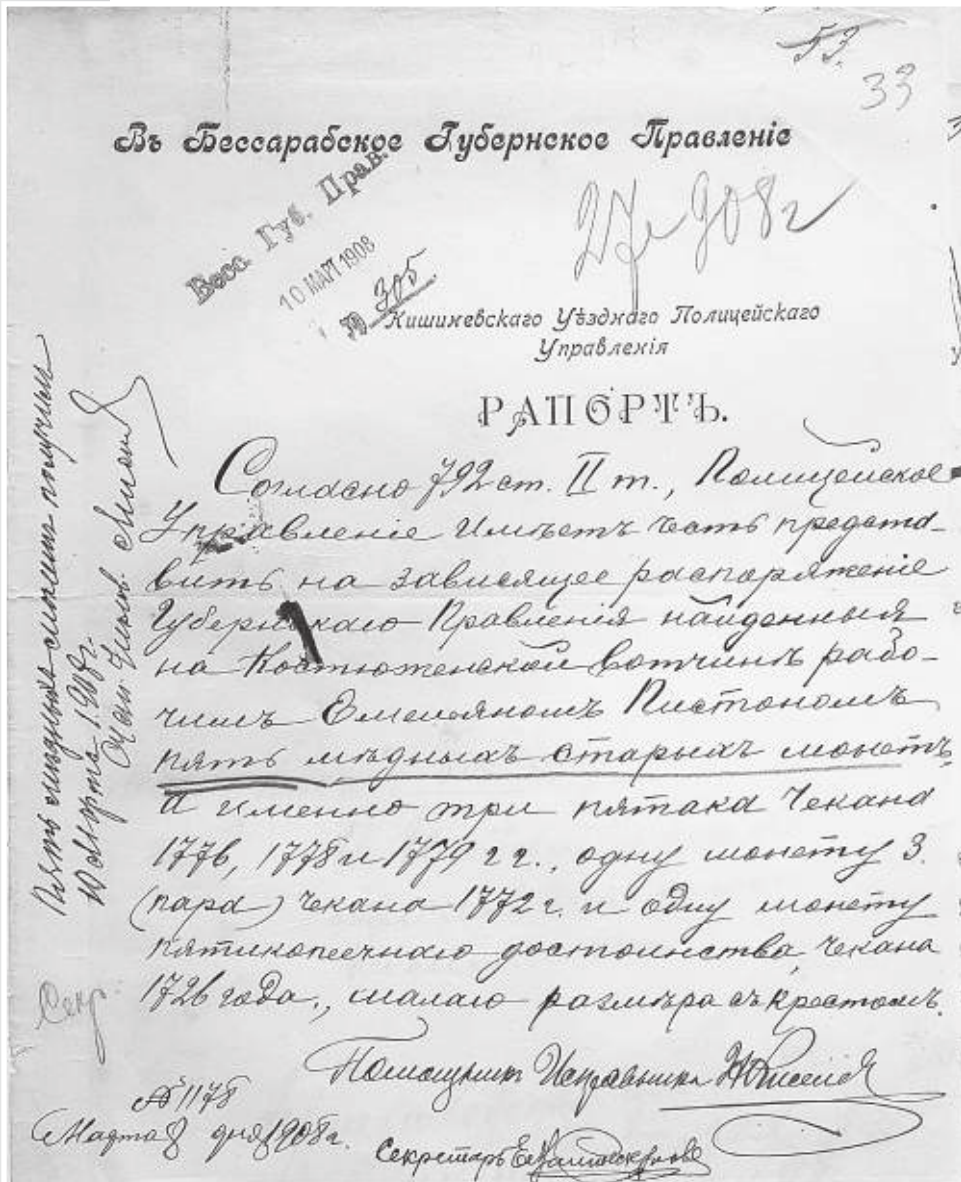 53.
33
Въ Бессарабское Губернское Правленіе
Бесс. Губ. Прав.
10 МАРТ 1908
№ 305
27 908 г
Кишиневскаго Уѣзднаго Полицейскаго
Управленія
РАПОРТЪ.
Согласно 792 ст. II т., Полицейское
Управленіе имѣетъ честь предста-
вить на зависящее распоряженіе
Губернскаго Правленія найденныя
на Костюженской вотчинѣ рабо-
чимъ Емельяномъ Пистономъ
пять мѣдныхъ старыхъ монетъ,
а именно три пятака чекана
1776, 1778 и 1779 г г., одну монету 3.
(пара) чекана 1772 г. и одну монету
пятикопеечнаго достоинства, чекана
1726 года., малаго размѣра съ крестомъ.
Помощникъ Исправника
№ 1178
Марта 8 дня 1908 г.
Секретарь
Пять мѣдныхъ монетъ получилъ
10 Марта 1908 г.
Секр.